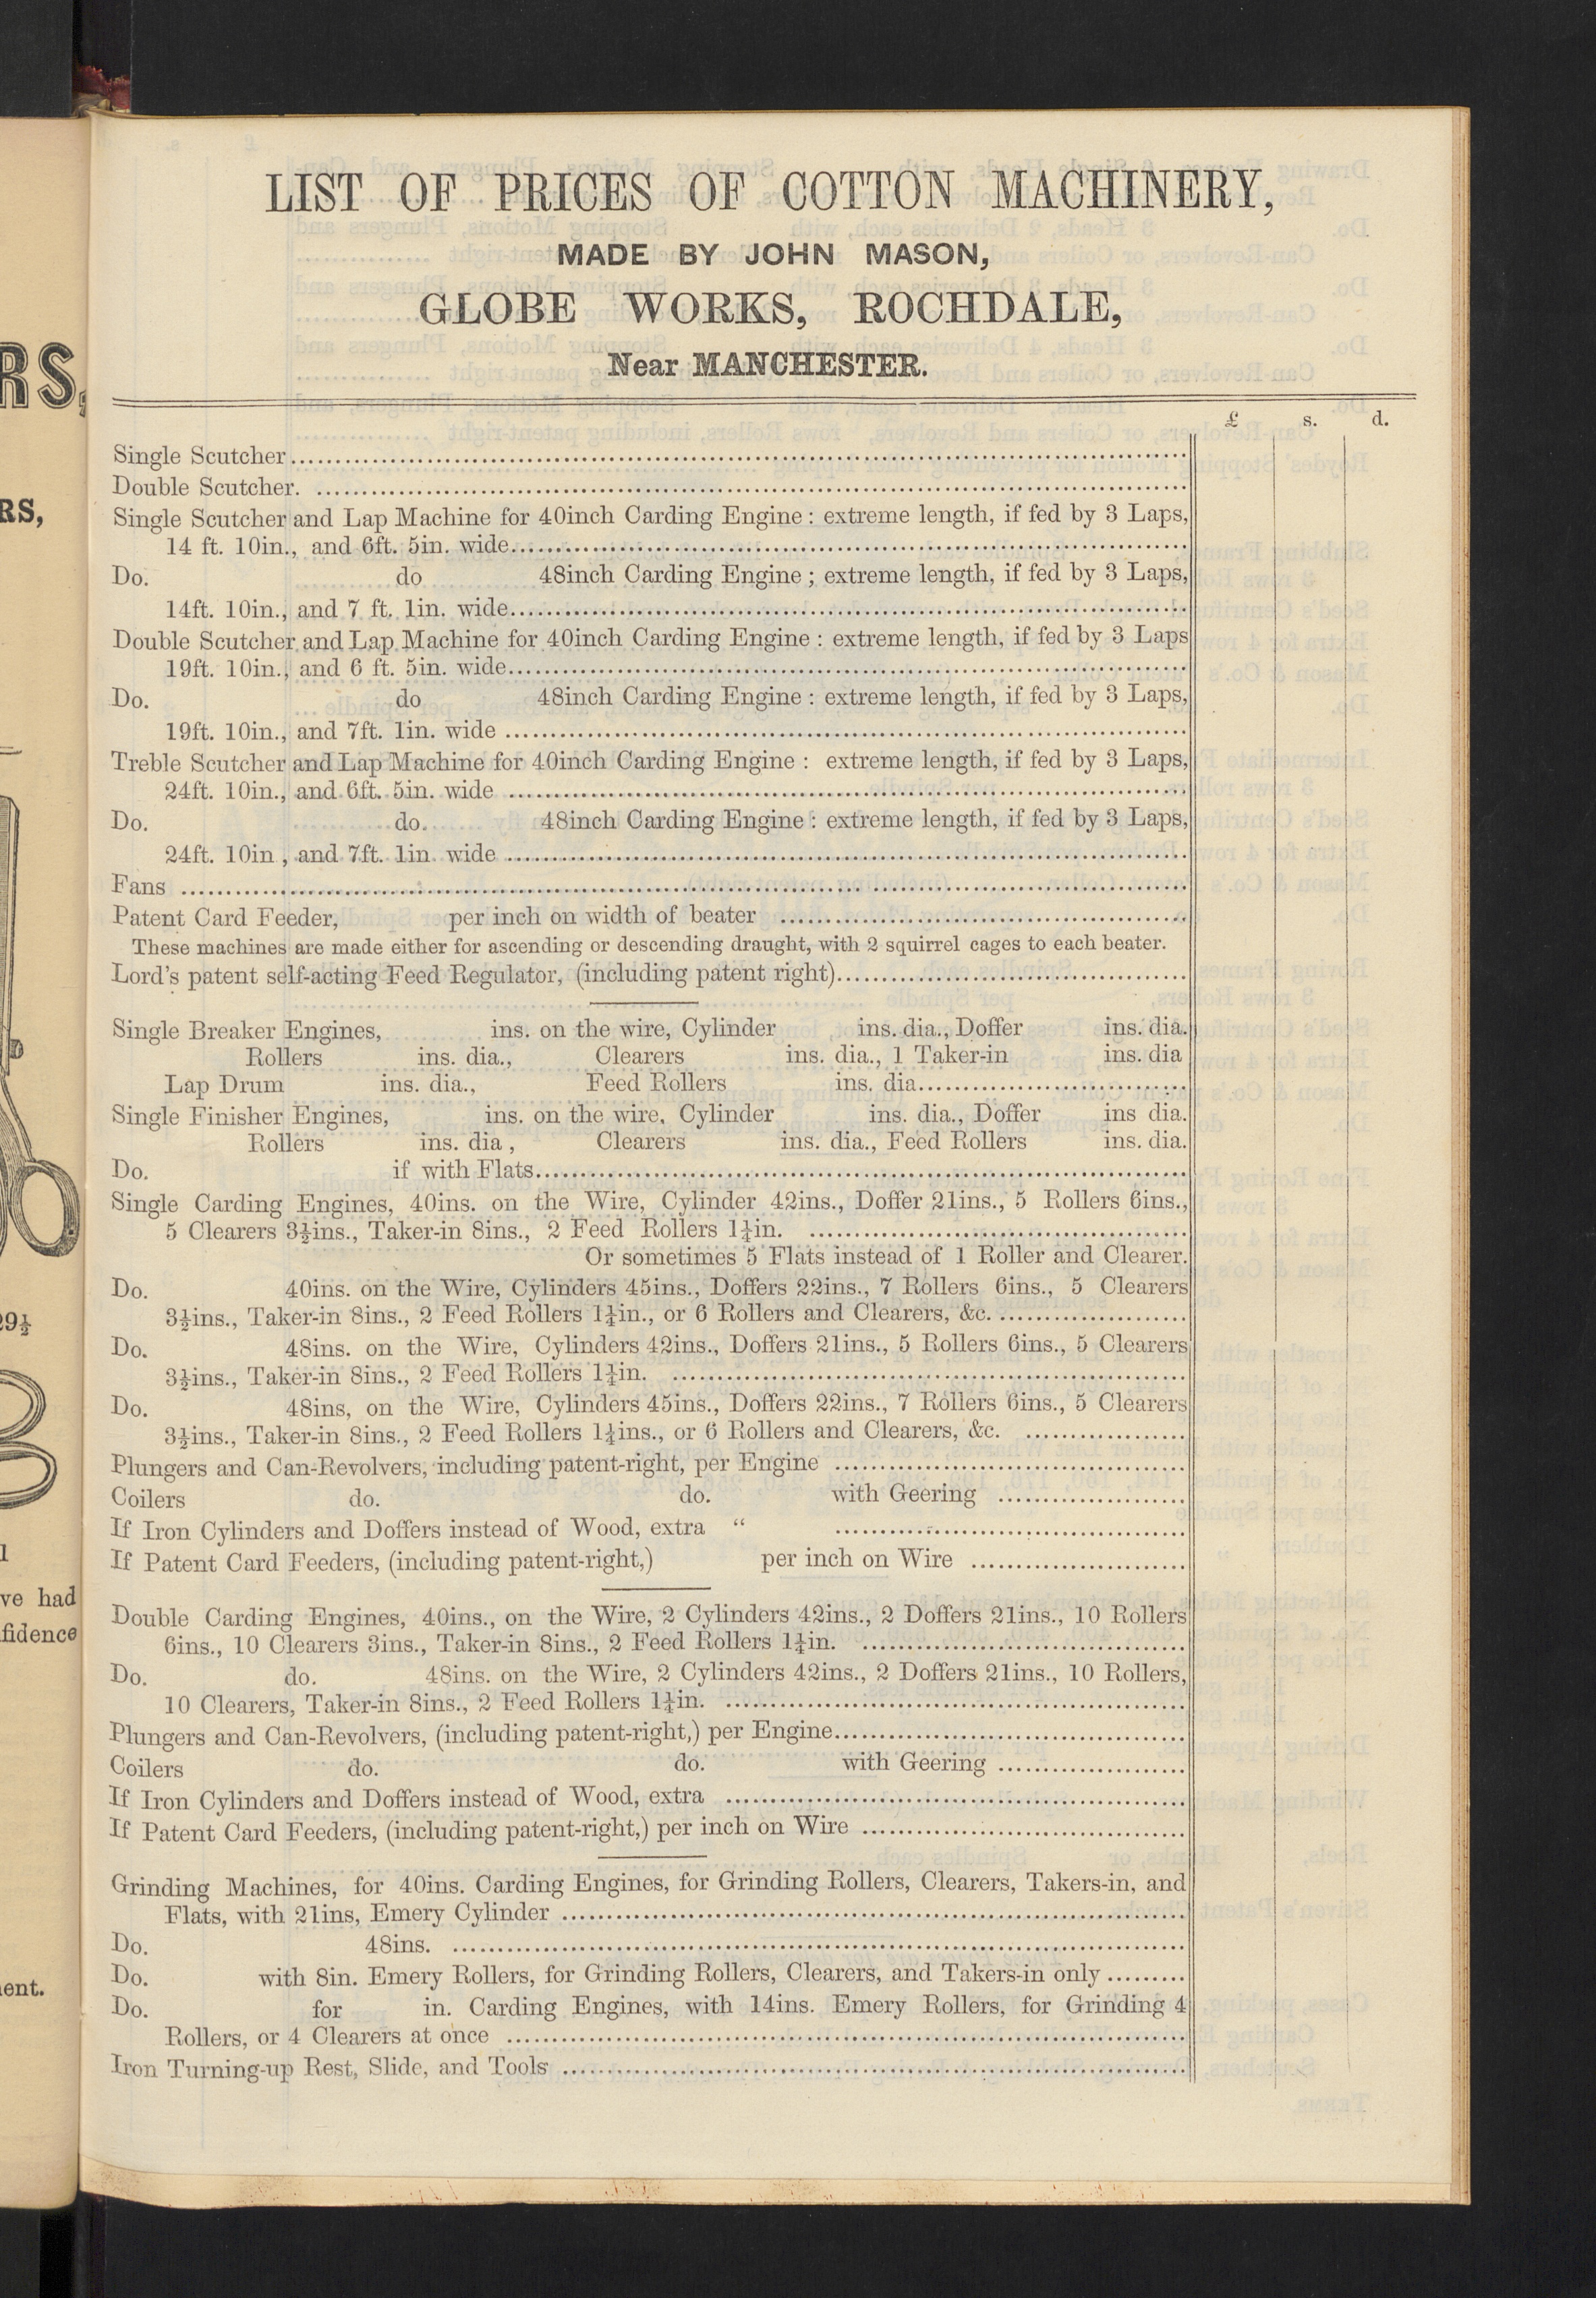 LIST OF PRICES OF COTTON MACHINERY,
MADE BY JOHN MASON,
GLOBE WORKS, ROCHDALE,
Near MANCHESTER.
£ s. d.
Single Scutcher
Double Scutcher.
Single Scutcher and Lap Machine for 40inch Carding Engine: extreme length, if fed by 3 Laps,
14 ft. 10in., and 6ft. 5in. wide
Do. do 48inch Carding Engine; extreme length, if fed by 3 Laps,
14ft. 10in., and 7 ft. 1in. wide
Double Scutcher and Lap Machine for 40inch Carding Engine: extreme length, if fed by 3 Laps
19ft. 10in., and 6 ft. 5in. wide
Do. do 48inch Carding Engine: extreme length, if fed by 3 Laps,
19ft. 10in., and 7ft. 1in. wide
Treble Scutcher and Lap Machine for 40inch Carding Engine: extreme length, if fed by 3 Laps,
24ft. 10in., and 6ft. 5in. wide
Do. do. 48inch Carding Engine: extreme length, if fed by 3 Laps,
24ft. 10in, and 7ft. 1in. wide
Fans
Patent Card Feeder, per inch on width of beater
These machines are made either for ascending or descending draught, with 2 squirrel cages to each beater.
Lord's patent self-acting Feed Regulator, (including patent right)
Single Breaker Engines, ins. on the wire, Cylinder ins. dia., Doffer ins. dia.
Rollers ins. dia., Clearers ins. dia., 1 Taker-in ins. dia
Lap Drum ins. dia., Feed Rollers ins. dia.
Single Finisher Engines, ins. on the wire, Cylinder ins. dia., Doffer ins dia.
Rollers ins. dia, Clearers ins. dia., Feed Rollers ins. dia.
Do. if with Flats
Single Carding Engines, 40ins. on the Wire, Cylinder 42ins., Doffer 21ins., 5 Rollers 6ins.,
5 Clearers 3½ins., Taker-in 8ins., 2 Feed Rollers 1¼in.
Or sometimes 5 Flats instead of 1 Roller and Clearer.
Do. 40ins. on the Wire, Cylinders 45ins., Doffers 22ins., 7 Rollers 6ins., 5 Clearers
3½ins., Taker-in 8ins., 2 Feed Rollers 1¼in., or 6 Rollers and Clearers, &c.
Do. 48ins. on the Wire, Cylinders 42ins., Doffers 21ins., 5 Rollers 6ins., 5 Clearers
3½ins., Taker-in 8ins., 2 Feed Rollers 1¼in.
Do. 48ins, on the Wire, Cylinders 45ins., Doffers 22ins., 7 Rollers 6ins., 5 Clearers
3½ins., Taker-in 8ins., 2 Feed Rollers 1¼ins., or 6 Rollers and Clearers, &c.
Plungers and Can-Revolvers, including patent-right, per Engine
Coilers do. do. with Geering
If Iron Cylinders and Doffers instead of Wood, extra "
If Patent Card Feeders, (including patent-right,) per inch on Wire
Double Carding Engines, 40ins., on the Wire, 2 Cylinders 42ins., 2 Doffers 21ins., 10 Rollers
6ins., 10 Clearers 3ins., Taker-in 8ins., 2 Feed Rollers 1¼in.
Do. do. 48ins. on the Wire, 2 Cylinders 42ins., 2 Doffers 21ins., 10 Rollers,
10 Clearers, Taker-in 8ins., 2 Feed Rollers 1¼in.
Plungers and Can-Revolvers, (including patent-right,) per Engine
Coilers do. do. with Geering
If Iron Cylinders and Doffers instead of Wood, extra
If Patent Card Feeders, (including patent-right,) per inch on Wire
Grinding Machines, for 40ins. Carding Engines, for Grinding Rollers, Clearers, Takers-in, and
Flats, with 21ins, Emery Cylinder
Do. 48ins.
Do. with 8in. Emery Rollers, for Grinding Rollers, Clearers, and Takers-in only
Do. for in. Carding Engines, with 14ins. Emery Rollers, for Grinding 4
Rollers, or 4 Clearers at once
Iron Turning-up Rest, Slide, and Tools